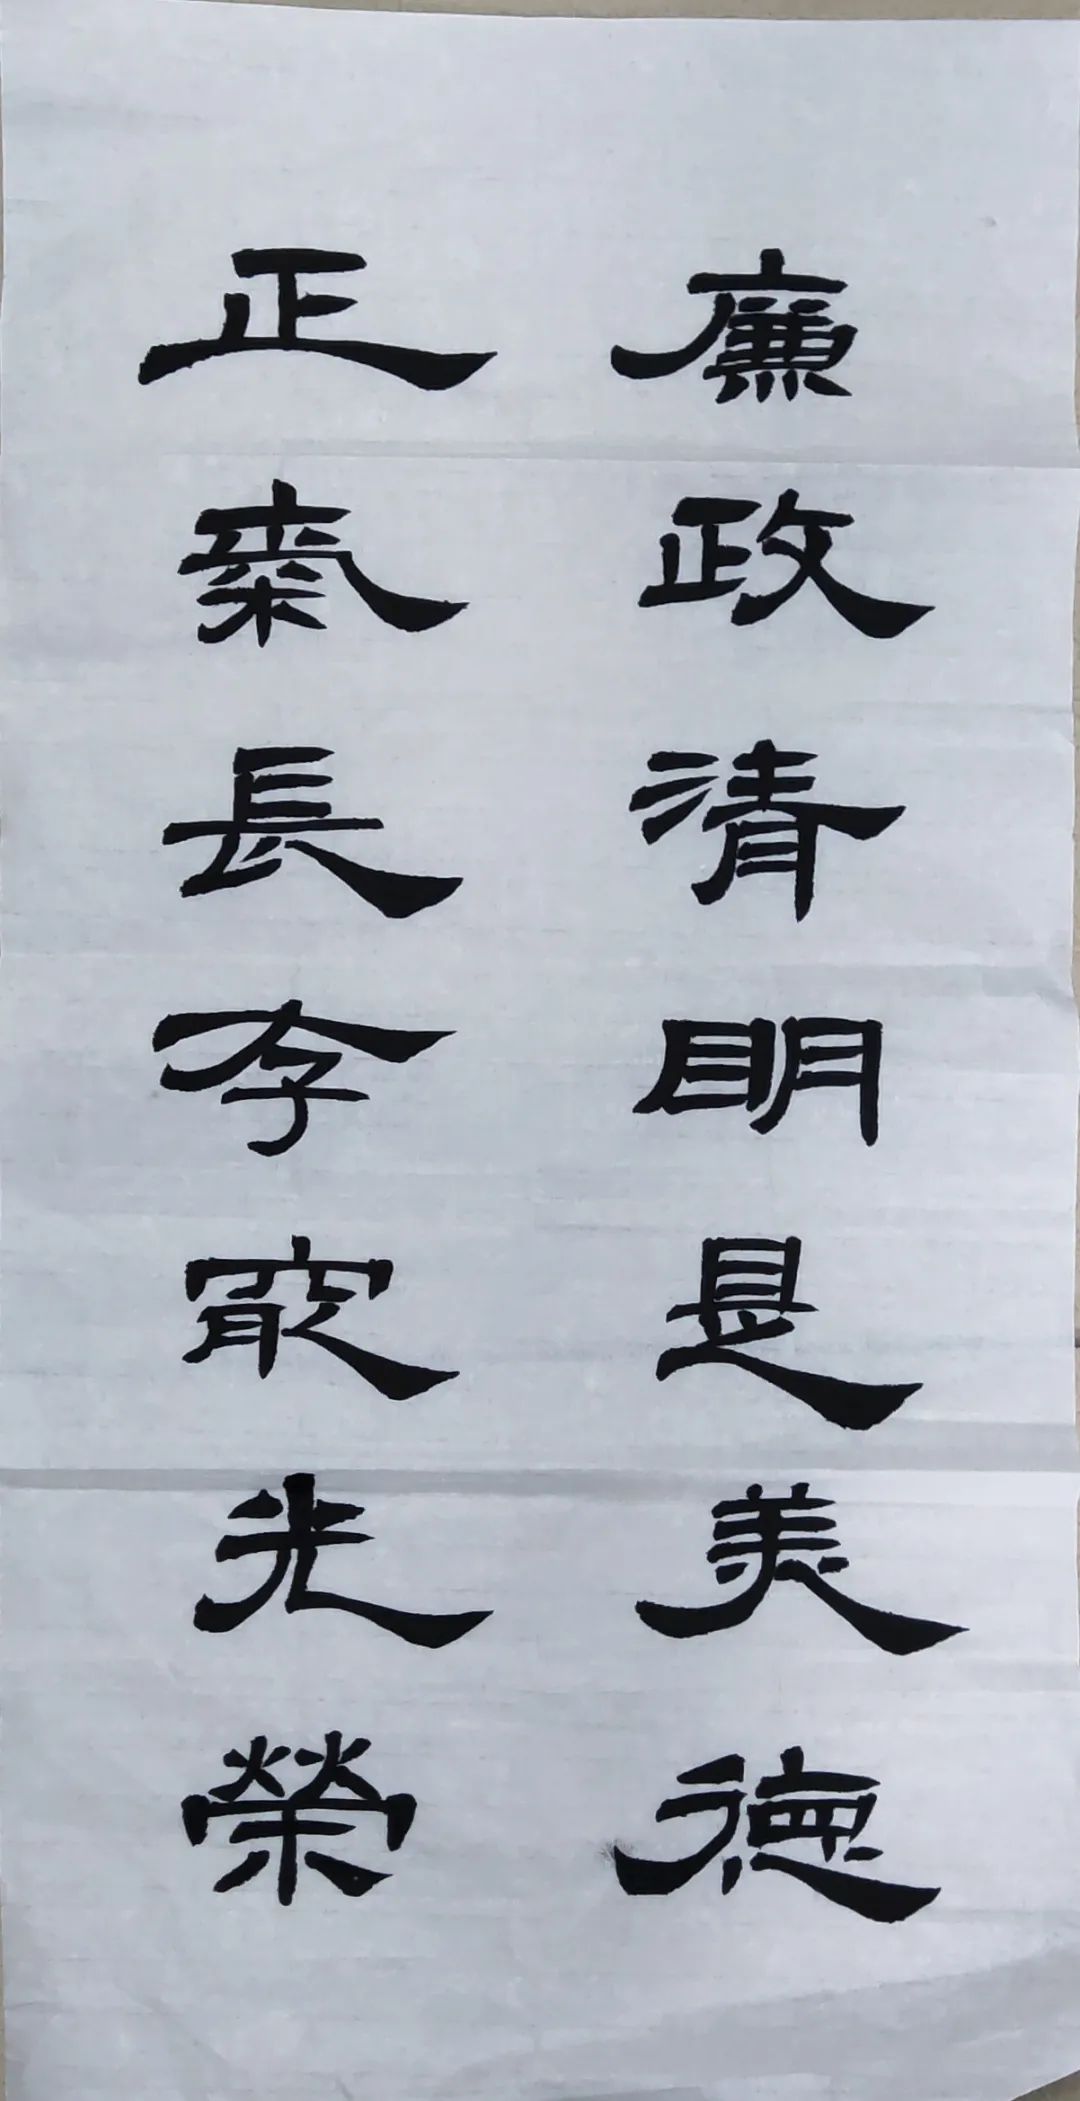 廉政清明是美德
正氣長存最光榮